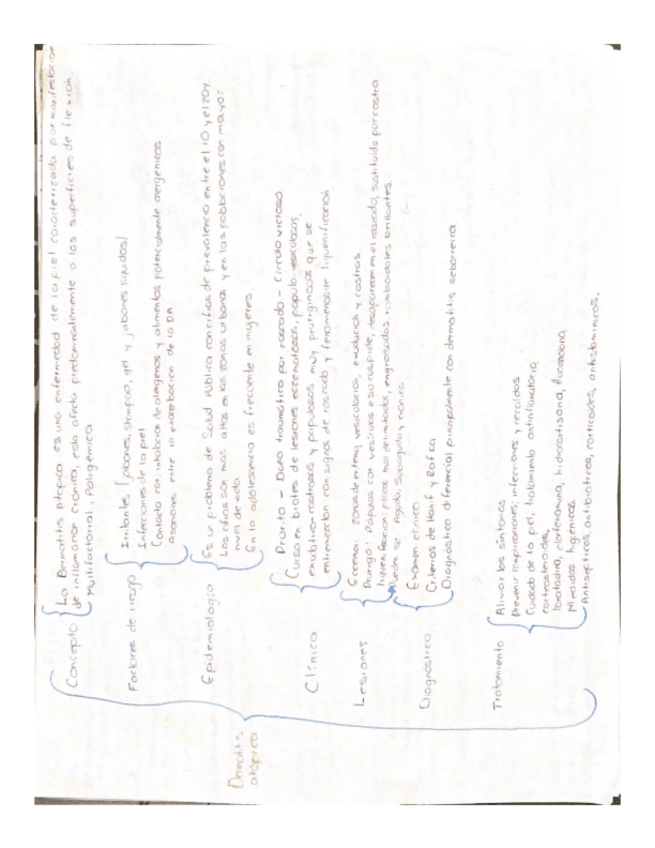 Dermatitis
atópica
Concepto
La Dermatitis Atópica es una enfermedad de la piel caracterizada por manifestación
de inflamación crónica, esta afecta predominantemente a las superficies de flexión.
Multifactorial, Poligénica
Factores de riesgo
Irritantes [jabones, shampoo, gel y jabones liquidos]
Infecciones de la piel
Contacto con inhalación de alergenos y alimentos potencialmente alergénicos
asociones entre la exacerbación de la DA
Epidemiología
Es un problema de Salud Pública con cifras de prevalencia entre el 10 y el 20%.
Las cifras son más altas en las zonas urbanas y en las poblaciones con mayor
nivel de vida
En la adolescencia es frecuente en mujeres
Clínica
Prurito - Daño traumático por rascado - Circulo vicioso
Cursa en brotes de lesiones eczematosas, papulo-vesiculosas,
exudativo-costrosas y papulosas muy pruriginosas que se
entremezclan con signos de rascado y fenomenos de liquenificación
Lesiones
Eccema: zonas de eritema, vesiculación, exudación y costras.
Prurigo: Pápulas con vesículas e su cuspide, desaparecen en el rascado, sustituida por costra
liquenificacion: placas mal delimitadas, engrosadas, romboidales brillantes
Pueden ser Aguda, Subaguda y crónica
Diagnóstico
Exámen clínico
Criterios de Hanif y Rafica
Diagnóstico diferencial principalmente con dermatitis seborreica
Tratamiento
Aliviar los síntomas
Prevenir complicaciones; infecciones y recaidas
Cuidado de la piel, tratamiento antiinflamatorio,
corticosteroides,
loratadina, clorfenamina, hidrocortisona,
Medidas higénicas
Antisepticos, antibioticos, corticoides, antistaminicos.